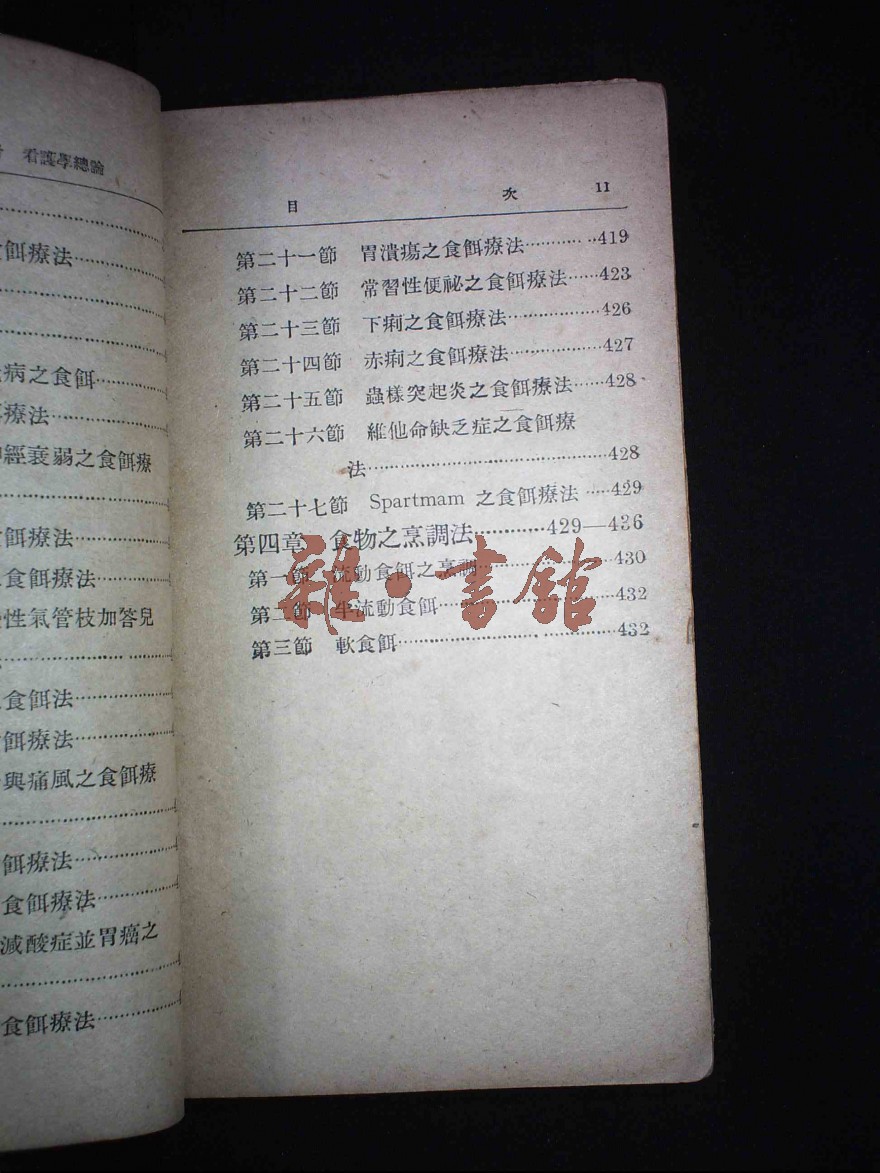 看護學總論
食餌療法
病之食餌
療法
神經衰弱之食餌療
食餌療法
食餌療法
性氣管枝加答兒
食餌法
食餌療法
與痛風之食餌療
餌療法
食餌療法
減酸症並胃癌之
食餌療法
目 次 11
第二十一節 胃潰瘍之食餌療法………… ··419
第二十二節 常習性便祕之食餌療法……423
第二十三節 下痢之食餌療法………………426
第二十四節 赤痢之食餌療法………………427
第二十五節 蟲樣突起炎之食餌療法……428
第二十六節 維他命缺乏症之食餌療
法…………………………………………428
第二十七節 Spartmam 之食餌療法……429
第四章 食物之烹調法…………429—436
第一節 流動食餌之烹調……………………430
第二節 半流動食餌…………………………432
第三節 軟食餌………………………………432
雜·書館